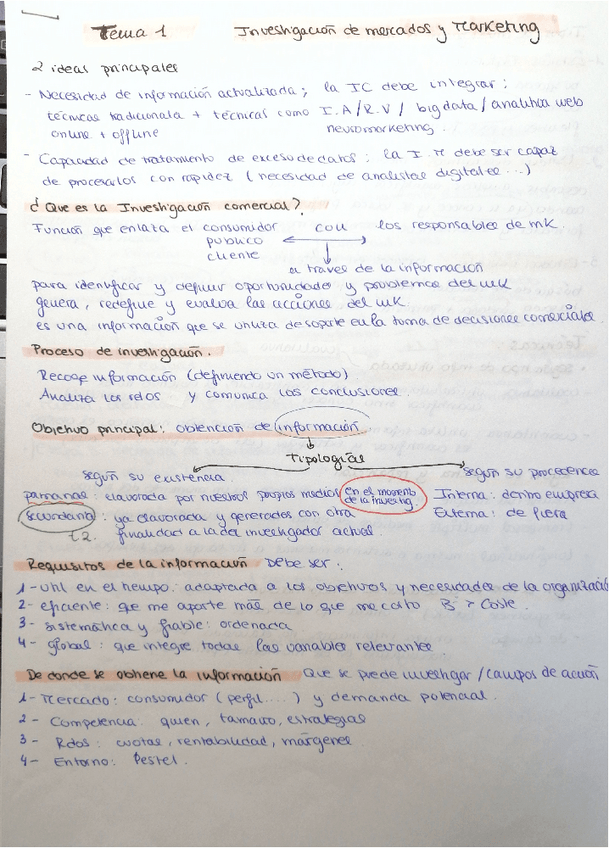 Tema 1 Investigación de mercados y Marketing
2 ideas principales
- Necesidad de información actualizada; la IC debe integrar:
técnicas tradicionales + técnicas como I.A / R.V / big data / analítica web
online + offline neuromarketing.
- Capacidad de tratamiento de exceso de datos: la I M debe ser capaz
de procesarlos con rapidez (necesidad de analistas digitales ...)
¿Que es la Investigación comercial?
Función que enlaza el consumidor con los responsables de mk.
publico
cliente
a traves de la información
para identificar y definir oportunidades y problemas del mk
genera, redefine y evalua las acciones del mk.
es una información que se utiliza de soporte en la toma de decisiones comerciales
Proceso de investigación.
Recoge información (definiendo un método)
Analiza los rdos y comunica las conclusiones.
Objetivo principal: obtención de información
Tipologías
según su existencia según su procedencia
primarias: elaborada por nuestros propios medios en el momento de la investig. Interna: dentro empresa
secundaria: ya elaborada y generados con otra Externa: de fuera
finalidad a la del investigador actual.
Requisitos de la información Debe ser:
1- util en el tiempo: adaptada a los objetivos y necesidades de la organización
2- eficiente: que me aporte más de lo que me costo B > Coste.
3- sistemática y fiable: ordenada
4- global: que integre todas las variables relevantes.
De donde se obtiene la información Que se puede investigar / campos de acción
1- Mercado: consumidor (perfil....) y demanda potencial.
2- Competencia: quien, tamaño, estrategias
3- Rdos: cuotas, rentabilidad, márgenes
4- Entorno: Pestel.